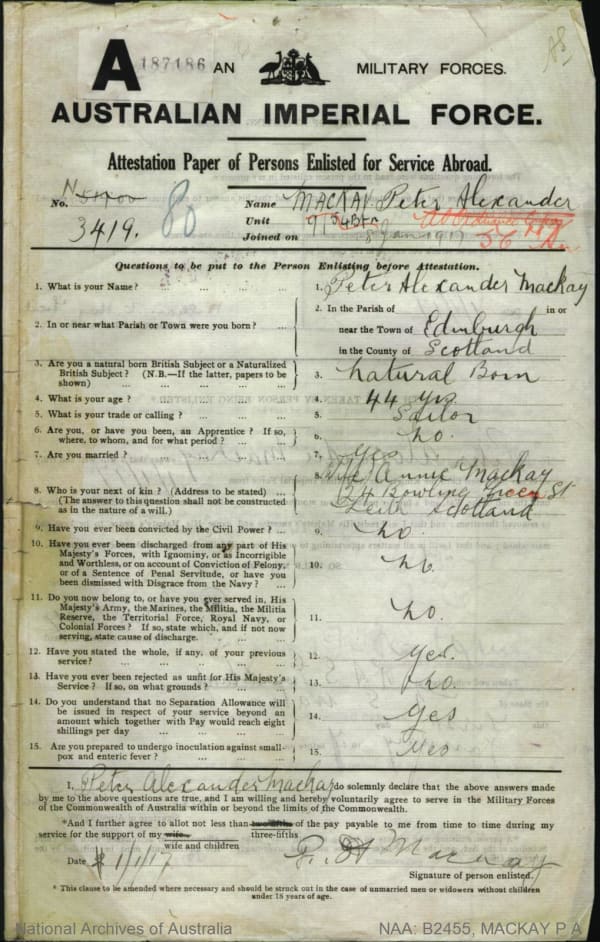 A 187186 AN MILITARY FORCES.
AUSTRALIAN IMPERIAL FORCE.
Attestation Paper of Persons Enlisted for Service Abroad.
No. 3419. 80 Name MACKAY Peter Alexander
Unit
Joined on 8 Jan 1917 56
Questions to be put to the Person Enlisting before Attestation.
1. What is your Name? ... 1. Peter Alexander Mackay
2. In or near what Parish or Town were you born? ... 2. In the Parish of in or
near the Town of Edinburgh
in the County of Scotland
3. Are you a natural born British Subject or a Naturalized
British Subject? (N.B.—If the latter, papers to be
shown) ... 3. Natural Born
4. What is your age? ... 4. 44 yrs
5. What is your trade or calling? ... 5. Sailor
6. Are you, or have you been, an Apprentice? If so,
where, to whom, and for what period? ... 6. No.
7. Are you married? ... 7. Yes
8. Who is your next of kin? (Address to be stated) ...
(The answer to this question shall not be construed
as in the nature of a will.) 8. Wife Annie Mackay
24 Bowling Green St
Leith Scotland
9. Have you ever been convicted by the Civil Power? ... 9. No.
10. Have you ever been discharged from any part of His
Majesty's Forces, with Ignominy, or as Incorrigible
and Worthless, or on account of Conviction of Felony,
or of a Sentence of Penal Servitude, or have you
been dismissed with Disgrace from the Navy? ... 10. No.
11. Do you now belong to, or have you ever served in, His
Majesty's Army, the Marines, the Militia, the Militia
Reserve, the Territorial Force, Royal Navy, or
Colonial Forces? If so, state which, and if not now
serving, state cause of discharge. ... 11. No.
12. Have you stated the whole, if any, of your previous
service? ... 12. Yes.
13. Have you ever been rejected as unfit for His Majesty's
Service? If so, on what grounds? ... 13. No.
14. Do you understand that no Separation Allowance will
be issued in respect of your service beyond an
amount which together with Pay would reach eight
shillings per day ... 14. Yes
15. Are you prepared to undergo inoculation against small-
pox and enteric fever? ... 15. Yes
I, Peter Alexander Mackay do solemnly declare that the above answers made
by me to the above questions are true, and I am willing and hereby voluntarily agree to serve in the Military Forces
of the Commonwealth of Australia within or beyond the limits of the Commonwealth.
*And I further agree to allot not less than two-fifths of the pay payable to me from time to time during my
three-fifths
service for the support of my wife.
wife and children
Date 1/1/17 P. A. Mackay
Signature of person enlisted.
* This clause to be amended where necessary and should be struck out in the case of unmarried men or widowers without children
under 18 years of age.
National Archives of Australia NAA: B2455, MACKAY P A